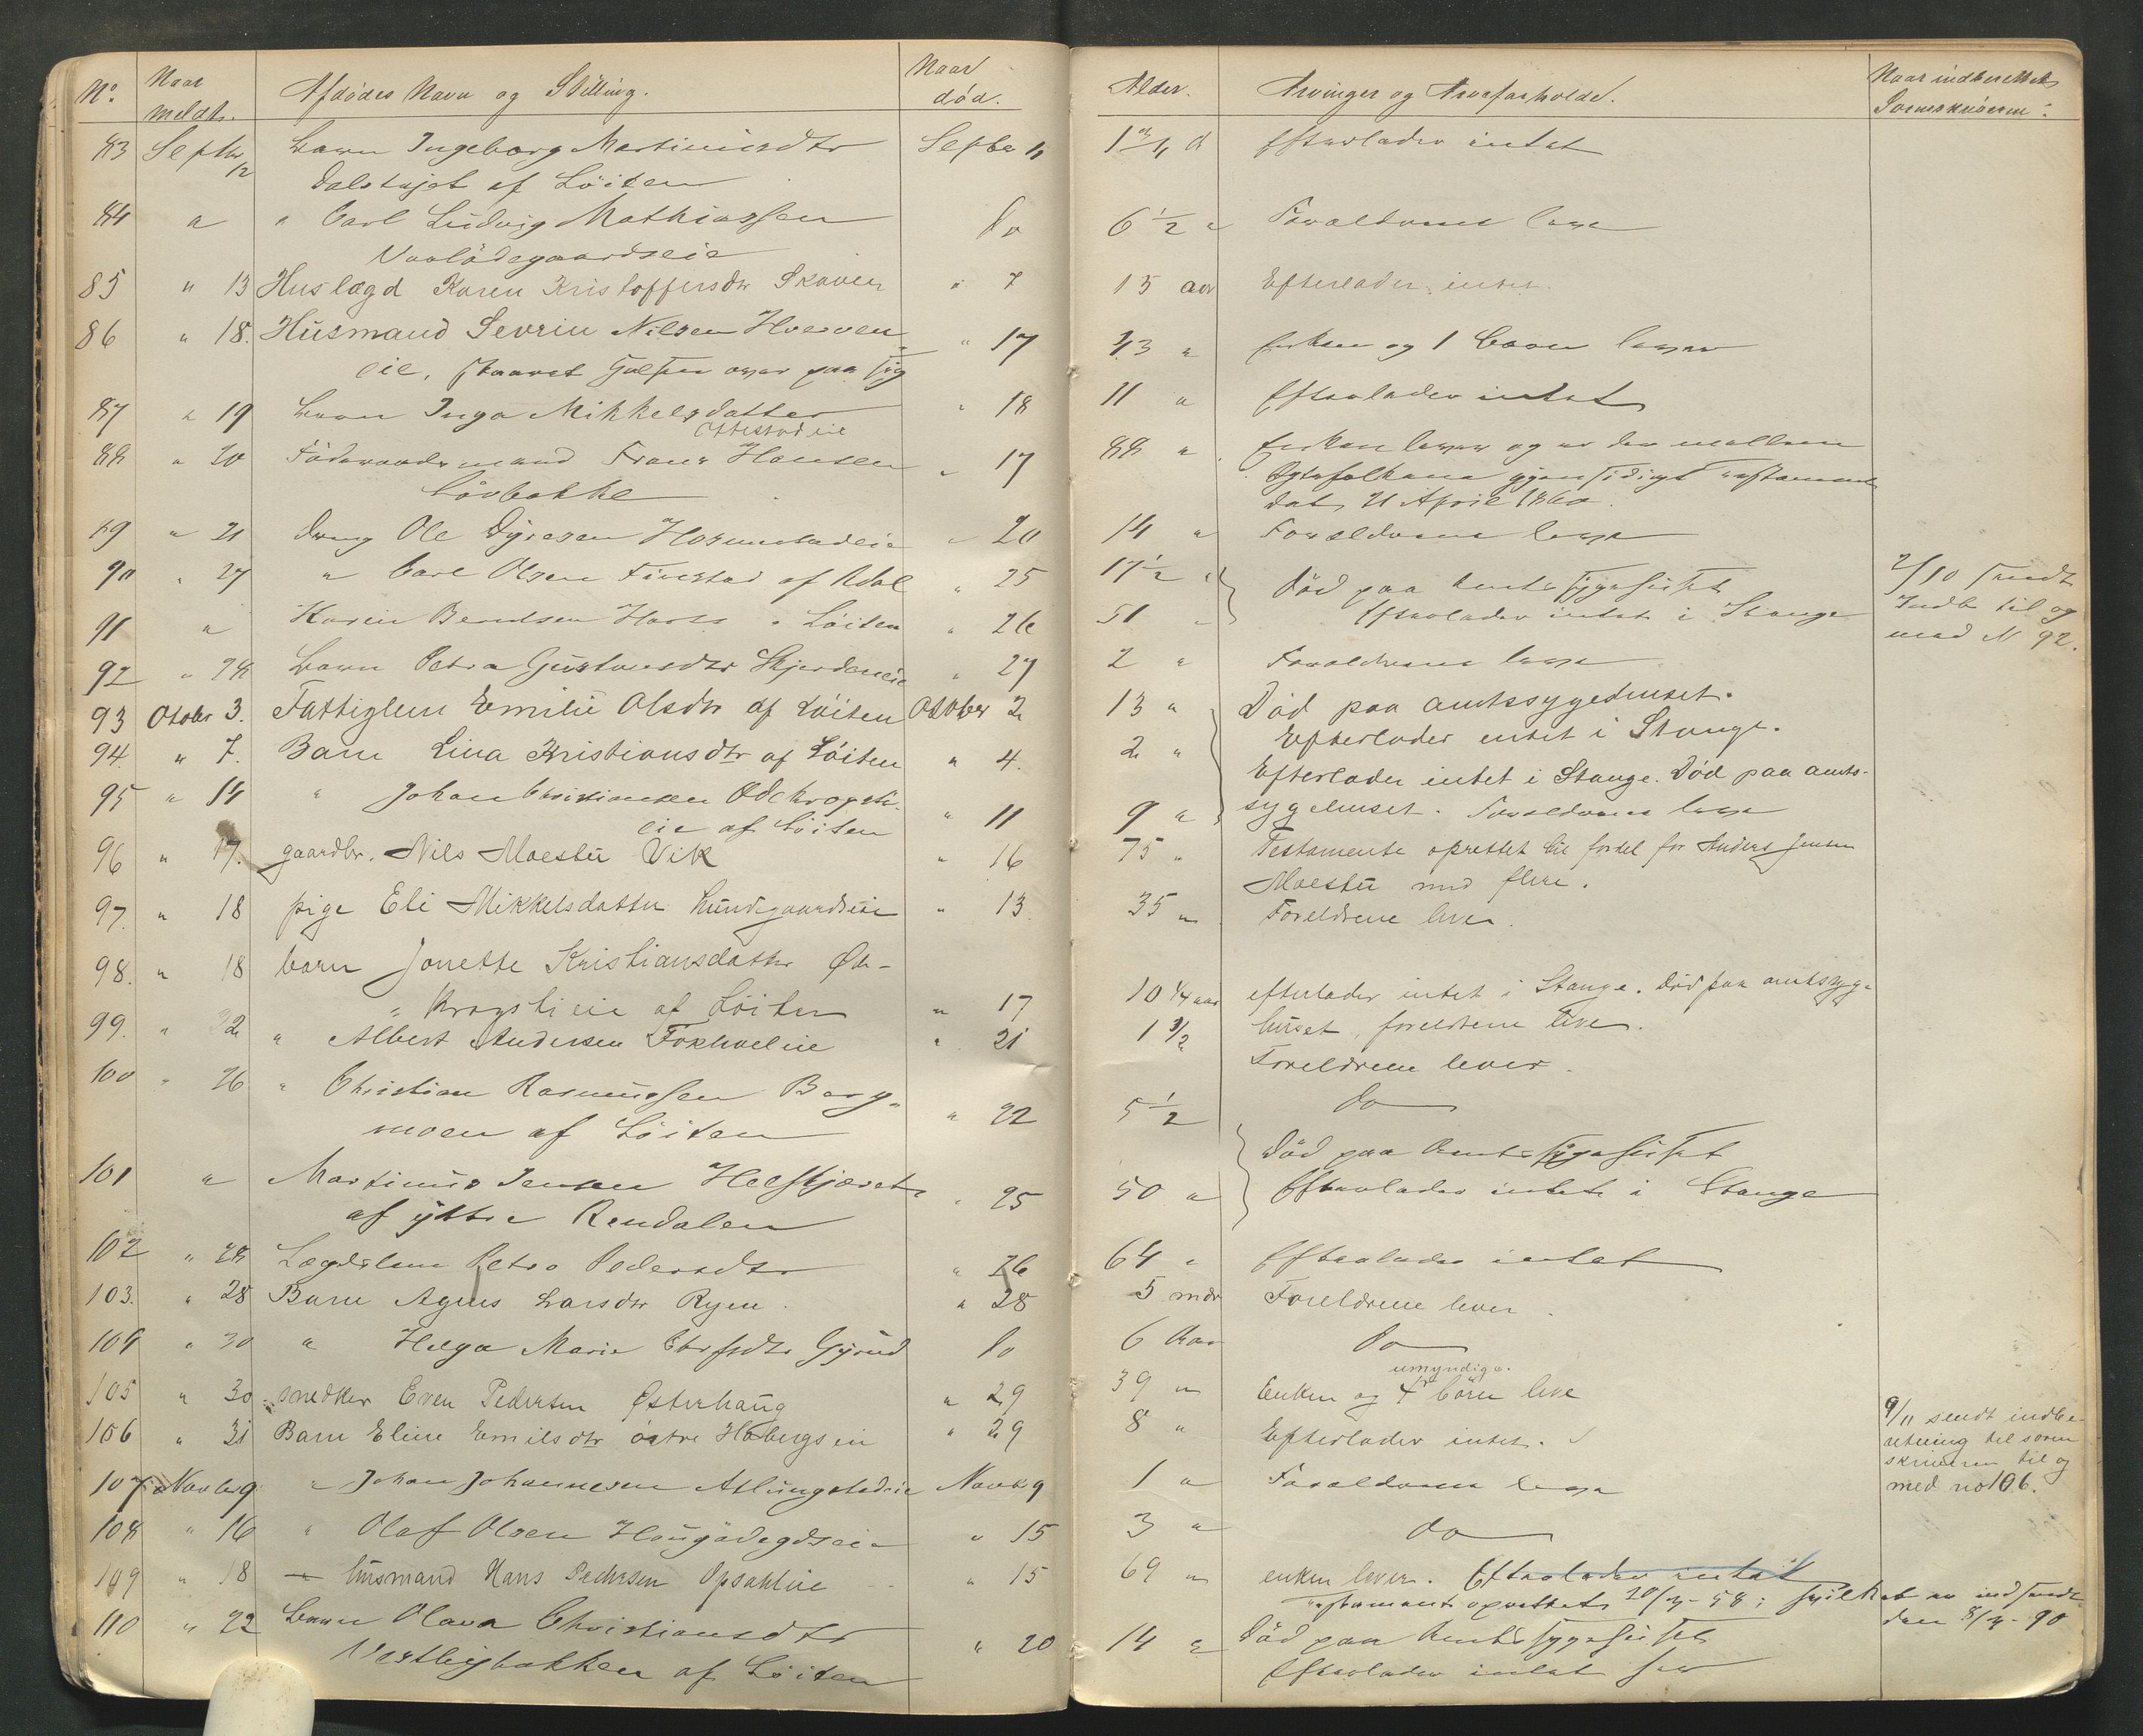 No. Naar meldt. Afdödes Navn og Stilling. Naar död. Alder. Arvinger og Arveforholde. Naar indberettet Sorenskriveren:
83 Septbr 12 Barn Ingeborg Martinusdtr Septbr 11 Efterlader intet
af Löiten
84 " " Carl Ludvig Mathiassen do 6 1/2 " Forældrene leve
85 " 13 Huslægd Karen Kristoffersdtr Skaven " 7 15 aar Efterlader intet.
86 " 18. Husmand Sevrin Nilsen " 17 43 " Enken og 1 Barn lever
eie, skaaret Halsen over paa sig
87 " 19 Barn Inga Mikkelsdatter " 18 11 " Efterlader intet
Ottestadeie
88 " 20 Föderaadsmand Frans Hansen " 17 88 " Enken lever og er der mellem
Lövbakke Ægtefolkene gjensidigt Testament
dat. 21 April 1860.
89 " 21 dreng Ole Dyresen " 20 14 " Forældrene leve
90 " 27 " Carl Olsen Finstad af Aadal " 25 17 1/2 " Död paa Amtssygehuset 2/10 sendt
91 " Karen Berntsen " Löiten " 26 51 " Efterlader intet i Stange Indb. til og
med N 92.
92 " 28 Barn Petra Gustavsdtr " 27 2 " Forældrene leve
93 Otober 3. Fattiglem Emilie Olsdtr af Löiten Otober 2 13 " Död paa amtssygehuset.
Efterlader intet i Stange.
94 " 7. Barn Lina Kristiansdtr af Löiten " 4. 2 " Efterlader intet i Stange. Död paa amts-
95 " 14 " Johan Christiansen Ödekrogsti- " 11 9 " sygehuset. Forældrene leve
eie af Löiten
96 " 17. gaardbr. Nils Moestu Vik " 16 75 " Testamente oprettet til fordel for Anders Jensen
Moestu med flere.
97. " 18 pige Eli Mikkelsdatter " 13 35 " Foreldrene lever.
98. " 18 barn Jonette Kristiansdatter Øde-
" Krogstieie af Löiten " 17 10 1/4 aar efterlader intet i Stange. död paa amtssyge-
huset, foreldrene leve.
99. " 22 " Albert Andersen Fokholeie " 21 1 1/2 Foreldrene lever.
100 " 26 " Christian Rasmussen Berg- " 22 5 1/2 do
moen af Löiten Död paa Amtssygehuset
101 " Martinus Jensen " 25 50 " Efterlader intet i Stange
af yttre Rendalen
102 " 28 Lægdslem Petra Pedersdtr " 26 64 " Efterlader intet
103. " 28 Barn Agnes Larsdtr Ryen. " 28 5 mdr Foreldrene lever.
104 " 30 " Helga Marie Gyrud do 6 Aar do
105 " 30 snedker Even Pedersen Østerhaug " 29 39 " Enken og 4 umyndige børn leve
106 " 31 Barn Eline Emilsdtr østre Habergseie " 29 8 " Efterlader intet. 9/11 sendt indbe-
retning til soren-
skriveren til og
med no 106.
107 Novbr 9 " Johan Johannesen Atlungstadeie Novbr 9 1 " Forældrene leve
108 " 16 " Olaf Olsen " 15 3 " do
109 " 18 husmand Hans Pedersen Opsahleie " 15 69 " enken lever. Efterlader intet
Testament oprettet 20/4 - 58; hvilket er indsendt
den 8/4 - 90
110 " 22 Barn Olava Christiansdtr " 20 14 " Död paa Amtssygehuset
Vestbybakken af Löiten Efterlader intet her